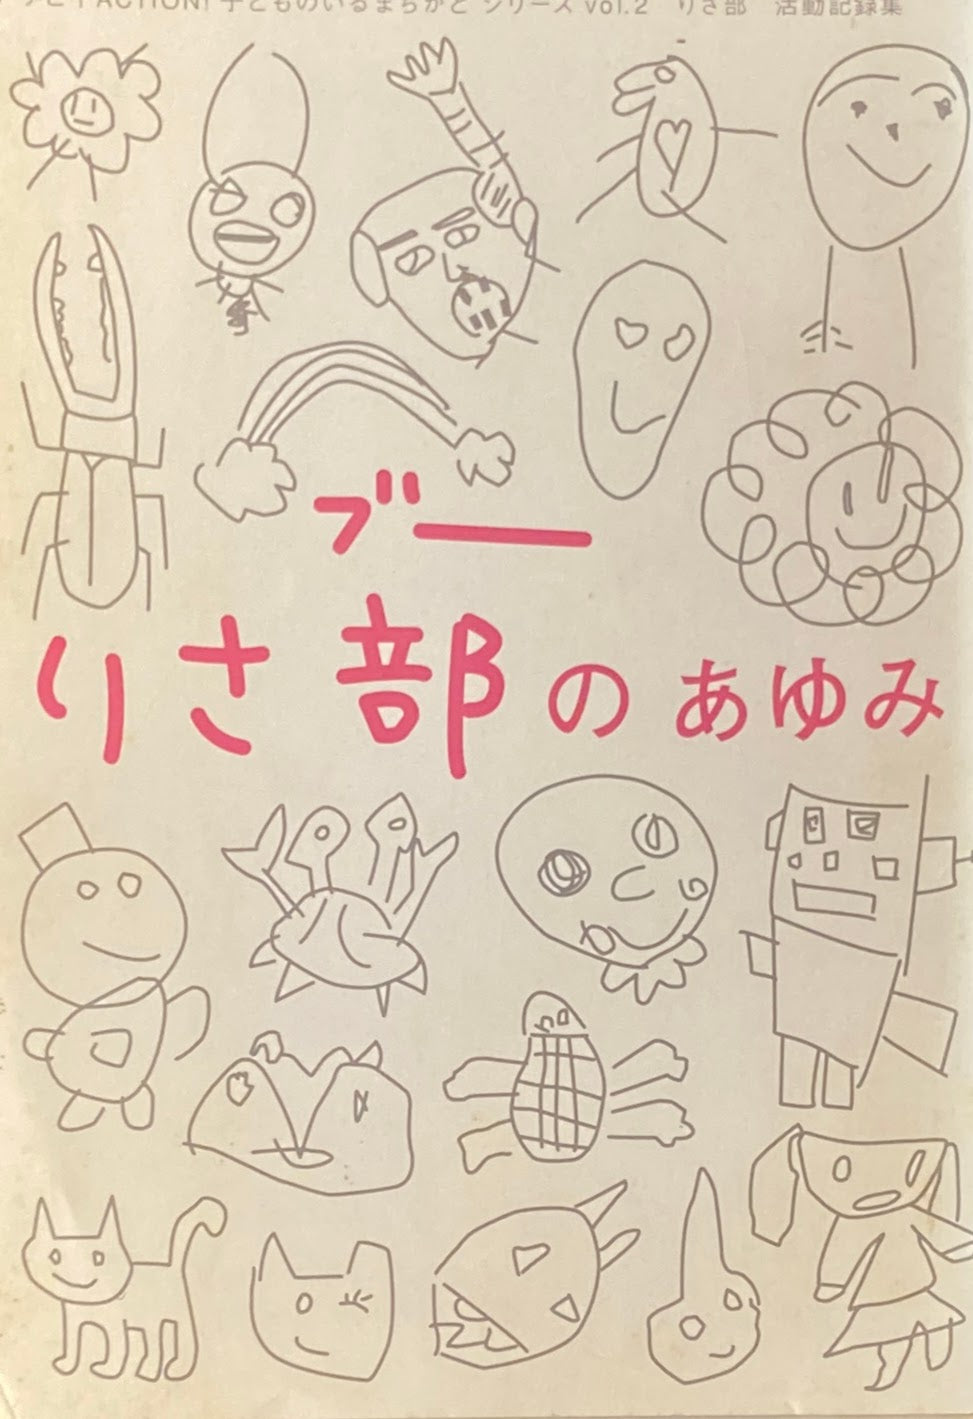 ACTION! 子どものいるまちかど シリーズ vol.2 りさ部 活動記録集
ブー
りさ部のあゆみ